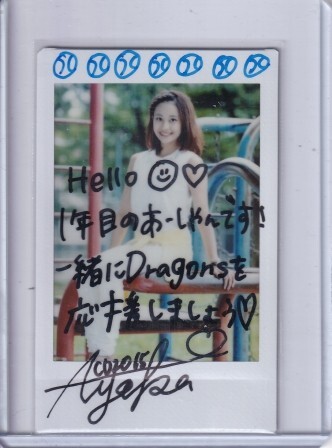 Hello
1年目のあーしゃんです!
一緒にDragonsを
応援しましょう
CD2015
Ayaka